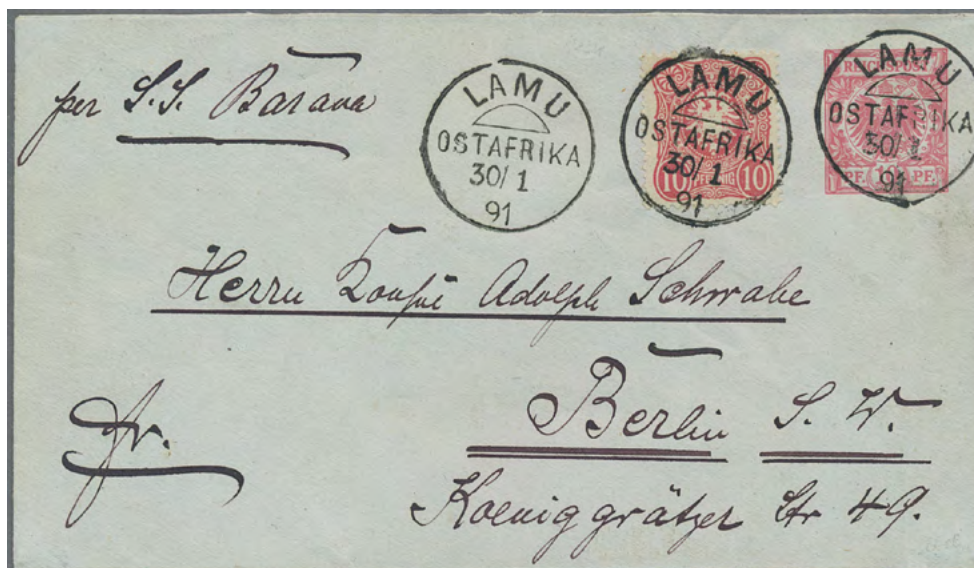 per S.S. Barawa
LAMU
OSTAFRIKA
30/1
91
LAMU
OSTAFRIKA
30/1
91
10 10
LAMU
OSTAFRIKA
30/1
91
REICHSPOST
PF. 10 PF.
Herrn Konsul Adolph Schwabe
Berlin S. W.
fr.
Koeniggrätzer Str 49.